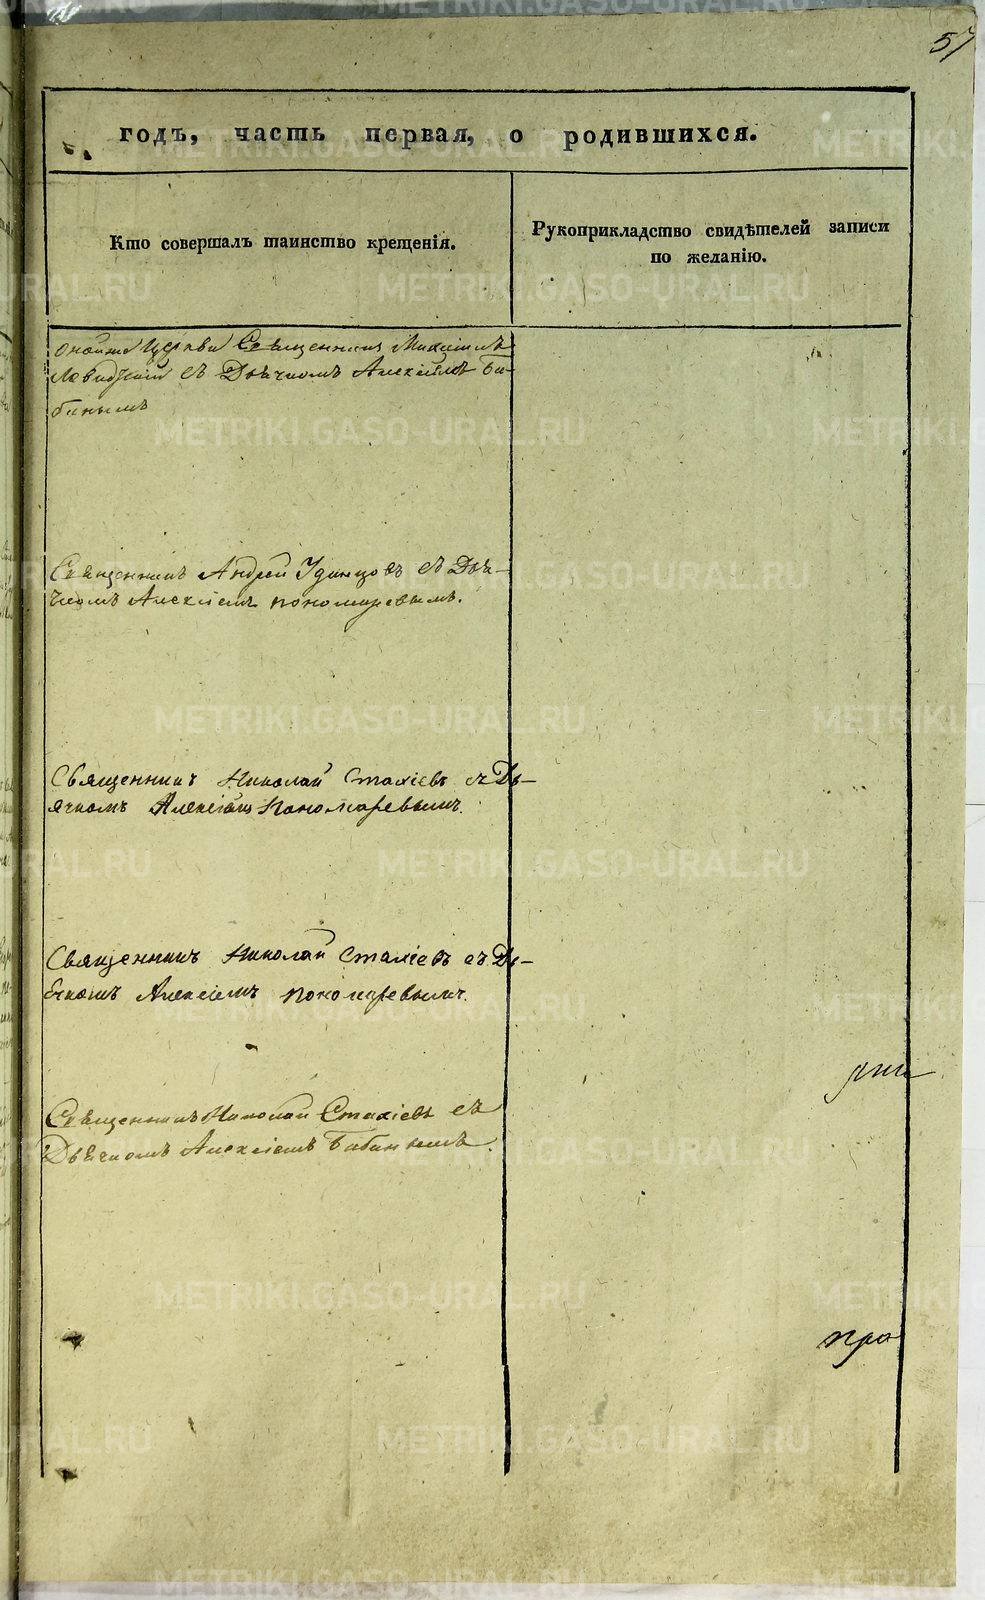 57
годъ, часть первая, о родившихся.
Кто совершалъ таинство крещенія.
Рукоприкладство свидѣтелей записи
по желанію.
Церкви Священникъ Михаилъ
съ Дьячкомъ Алексіемъ Ба-
бинымъ
Священникъ Андрей Удинцовъ съ Дья-
чкомъ Алексіемъ пономаревымъ.
Священникъ Николай Стахіевъ съ Дь-
ячкомъ Алексіемъ Пономаревымъ.
Священникъ Николай Стахіевъ съ Дь-
ячкомъ Алексіемъ пономаревымъ.
Священникъ Николай Стахіевъ съ
Дьячкомъ Алексіемъ Бабинымъ.
про
METRIKI.GASO-URAL.RU